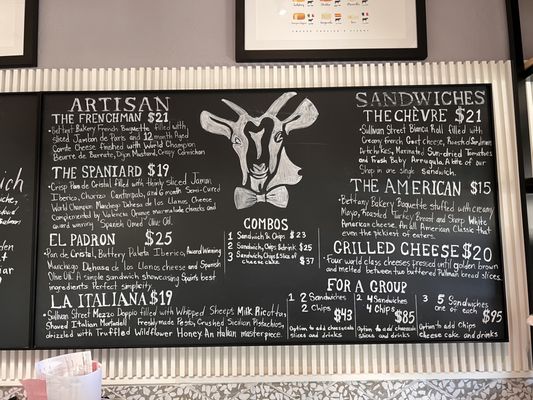 ARTISAN
THE FRENCHMAN $21
Bettant Bakery French Baguette filled with
Sliced Jambon de Paris and 12 month Aged
Comte Cheese finished with World Champion
Beurre de Barrate, Dijon Mustard, Crispy Cornichon
THE SPANIARD $19
Crisp Pan de Cristal filled with thinly sliced Jamon
Iberico, Chorizo Cantimpalo, and 6 month Semi-Cured
World Champion Manchego Dehesa de los Llanos Cheese
Complemented by Valencia Orange marmalade chunks and
award winning Spanish Olive Oil.
EL PADRON $25
Pan de Cristal, Buttery Paleta Iberico, Award Winning
Manchego Dehesa de los Llanos cheese and Spanish
Olive Oil. A simple sandwich showcasing Spain's best
ingredients Perfect simplicity.
LA ITALIANA $19
Sullivan Street Mezzo Doppio filled with Whipped Sheep's Milk Ricotta
Shaved Italian Mortadell Freshly made Pesto, Crushed Sicilian Pistachios,
drizzled with Truffled Wildflower Honey An Italian masterpiece.
COMBOS
1 Sandwich & Chips $23
2 Sandwich, Chips & drink $25
3 Sandwich, Chips & Slice of $37
cheese cake
SANDWICHES
THE CHÈVRE $21
Sullivan Street Bianca Roll filled with
creamy French Goat cheese, Roasted
Artichokes, Marinated Sun-dried Tomatoes
and Fresh Baby Arrugala. A bite of our
Shop in one single sandwich.
THE AMERICAN $15
Bettany Bakery Baguette stuffed with creamy
Mayo, Roasted Turkey Breast and Sharp White
American cheese. An all American Classic that
even the pickiest of eaters.
GRILLED CHEESE $20
Four world class cheeses pressed until golden brown
and melted between two buttered Pullman bread slices.
FOR A GROUP
1 2 Sandwiches
2 Chips $43
Option to add cheesecake
slices and drinks
2 4 Sandwiches
4 Chips $85
Option to add cheesecake
slices and drinks
3 5 Sandwiches
one of each $95
Option to add Chips
cheese cake and drinks